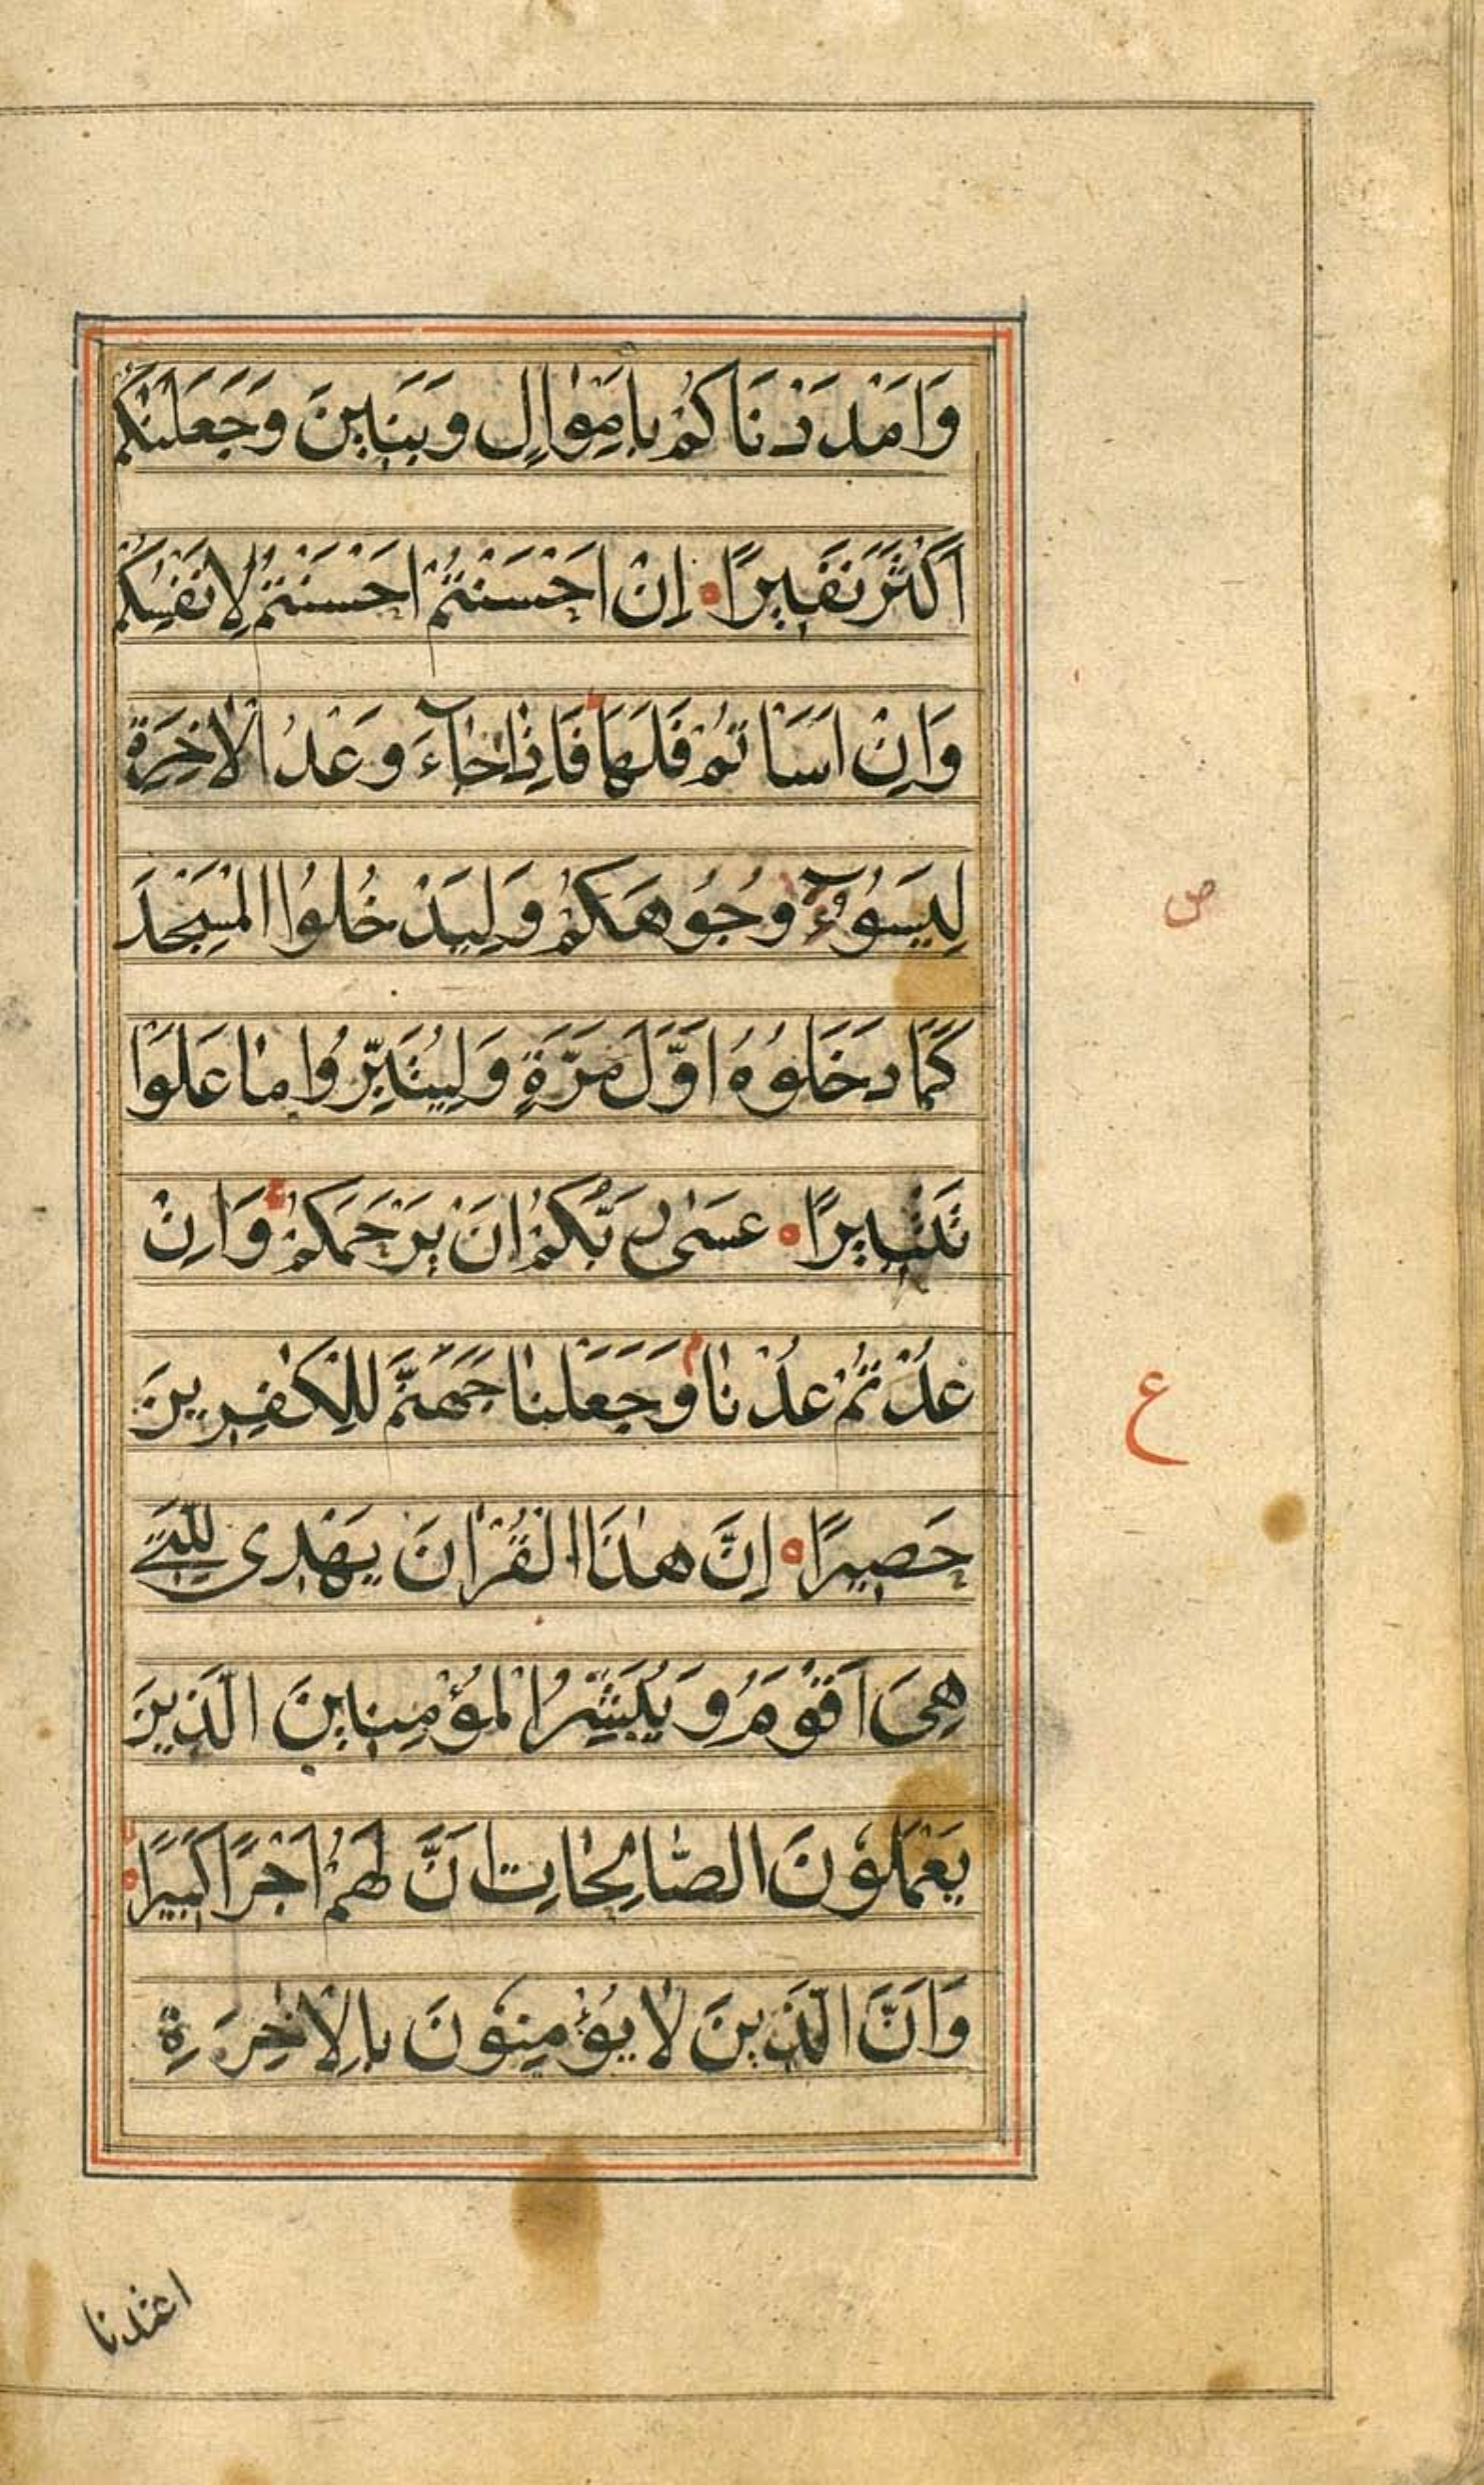 وَاَمْدَدْنَاكُمْ بِاَمْوٰالٍ وَبَنٖينَ وَجَعَلْنٰكُمْ
اَكْثَرَ نَفٖيرًا ۝ اِنْ اَحْسَنْتُمْ اَحْسَنْتُمْ لِاَنْفُسِكُمْ
وَاِنْ اَسَاْتُمْ فَلَهٰا ط فَاِذٰا جٰآءَ وَعْدُ الْاٰخِرَةِ
لِيَسُوٓءُا وُجُوهَكُمْ وَلِيَدْخُلُوا الْمَسْجِدَ
كَمٰا دَخَلُوهُ اَوَّلَ مَرَّةٍ وَلِيُتَبِّرُوا مٰا عَلَوْا
تَتْبٖيرًا ۝ عَسٰى رَبُّكُمْ اَنْ يَرْحَمَكُمْ ج وَاِنْ
عُدْتُمْ عُدْنٰا م وَجَعَلْنٰا جَهَنَّمَ لِلْكٰفِرٖينَ
حَصٖيرًا ۝ اِنَّ هٰذَا الْقُرْاٰنَ يَهْدٖى لِلَّتٖى
هِىَ اَقْوَمُ وَيُبَشِّرُ الْمُؤْمِنٖينَ الَّذٖينَ
يَعْمَلُونَ الصّٰالِحٰاتِ اَنَّ لَهُمْ اَجْرًا كَبٖيرًا ۝
وَاَنَّ الَّذٖينَ لٰا يُؤْمِنُونَ بِالْاٰخِرَةِ
ص
ع
اعتدنا